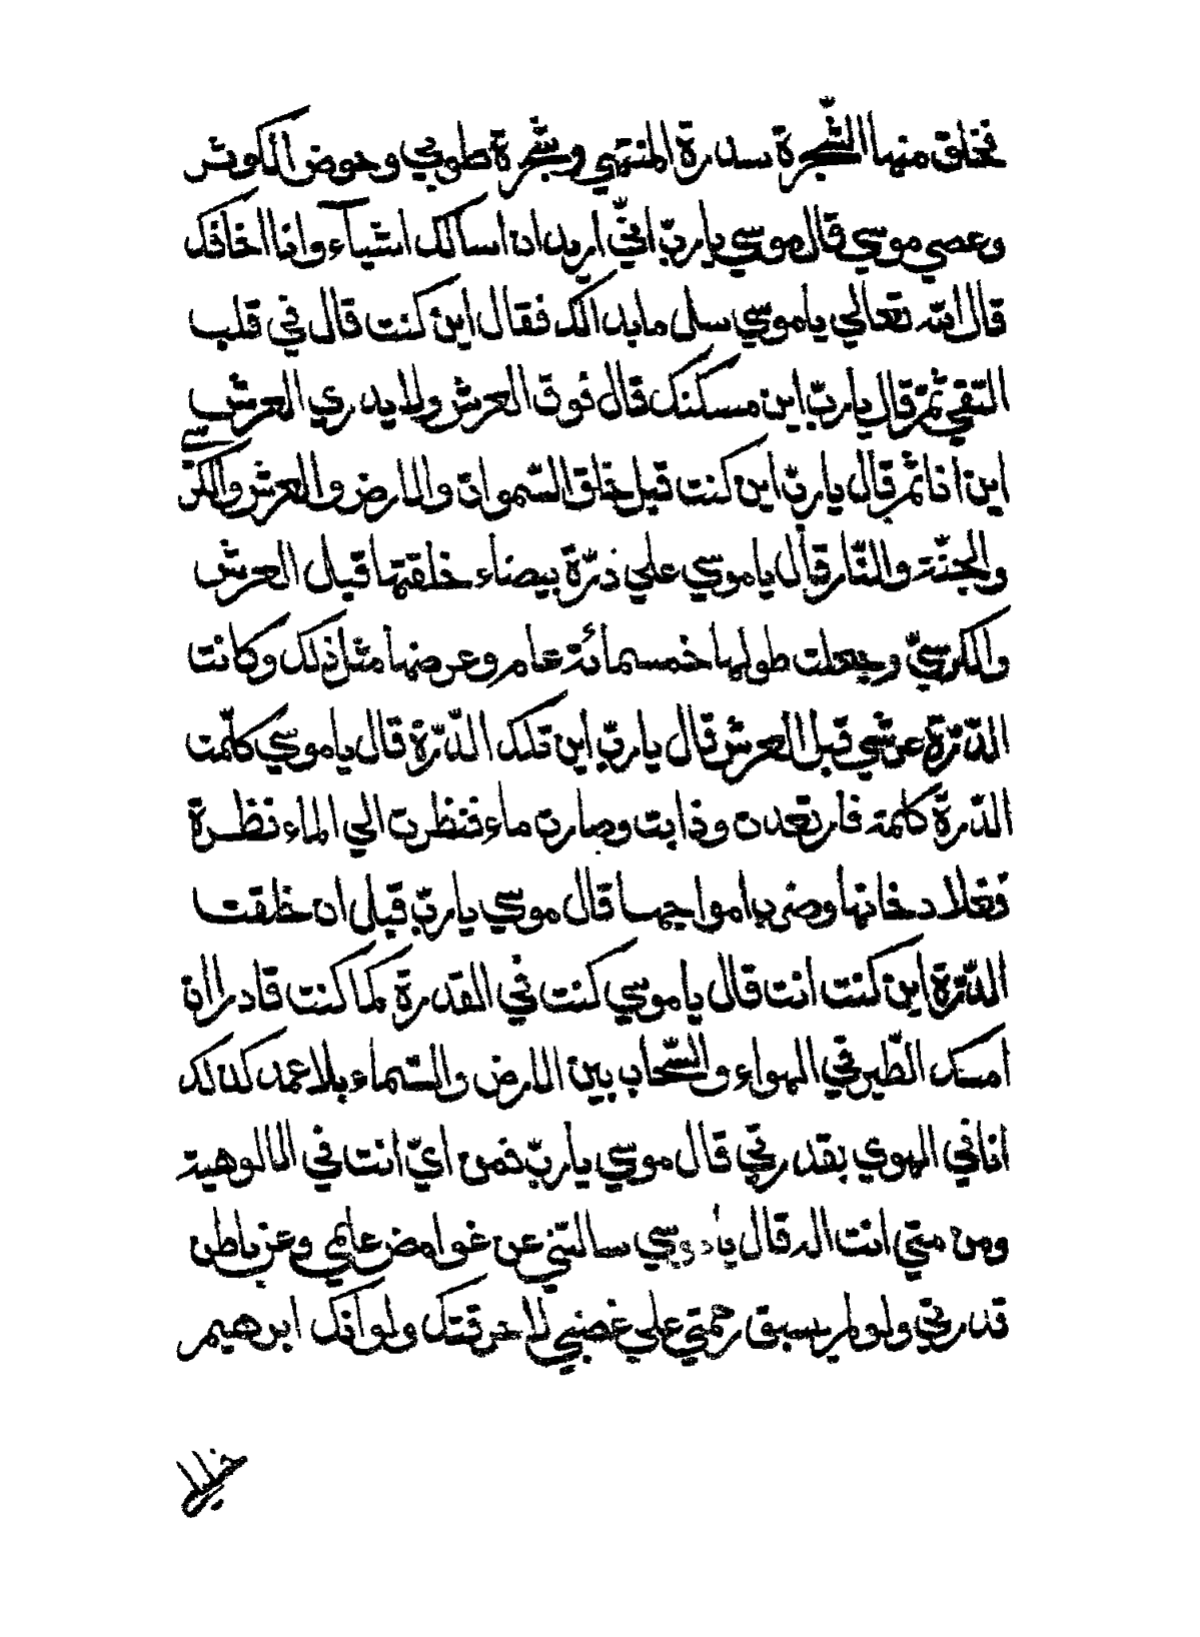 فخلق منها الشّجرة سدرة المنتهي وشجرة طوبي وحوض الكوثر
وعصي موسي قال موسي يارب انّي اريد ان اسالك اشيآء وانا اخافك
قال الله تعالي ياموسي سل مابدالك فقال اين كنت قال في قلب
التقي ثمّ قال يارب اين مسكنك قال فوق العرش ولا يدري العرش
اين انا ثم قال يارب اين كنت قبل خلق السّموات والارض والعرش والكرسي
والجنّة والنّار قال ياموسي علي ذرّة بيضاء خلقتها قبل العرش
والكرسيّ وجعلت طولها خمسمائة عام وعرضها مثل ذلك وكانت
الذّرّة عرشي قبل العرش قال ياربّ اين تلك الذّرّة قال ياموسي كلّمت
الذّرة كلمة فارتعدت وذابت وصارت ماء فنظرت الي الماء نظرة
فعلا دخانها وضرب امواجها قال موسي ياربّ قبل ان خلقت
الذّرّة اين كنت انت قال ياموسي كنت في القدرة كما كنت قادرا ان
امسك الطّير في الهواء والسّحاب بين الارض والسّماء بلا عمد كذلك
انا في الهوي بقدرتي قال موسي ياربّ فمن ايّ انت في الالوهية
ومن متي انت اله قال ياموسي سالتني عن غوامض علمي وعن باطن
قدرتي ولولم يسبق رحمتي علي غضبي لاحرقتك ولوانك ابرهيم
خليلي